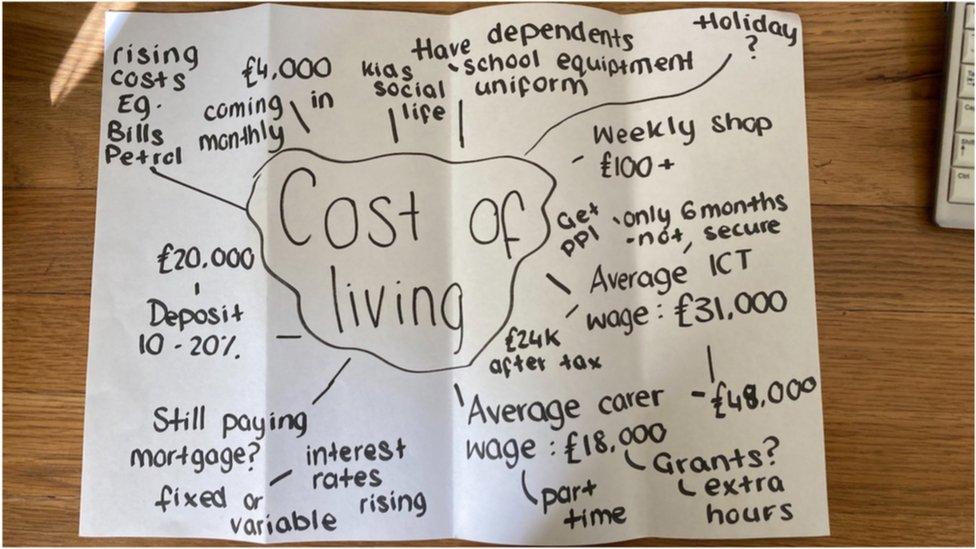 rising
costs
Eg.
Bills
Petrol
£4,000
coming in
monthly
kias
social
life
Have dependents
school equiptment
uniform
Holiday
?
Weekly shop
£100+
Cost of
living
Get
PPI
only 6 months
-not, secure
Average ICT
wage: £31,000
£24k
after tax
-£48,000
£20,000
Deposit
10-20%
Still paying
mortgage?
fixed or
variable
interest
rates
rising
Average carer
wage: £18,000
part
time
Grants?
extra
hours
Shift
Ctrl